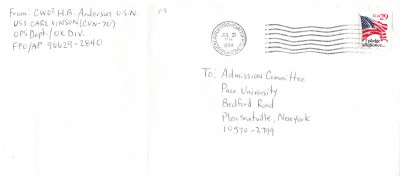 From: CWO2 H.B. Anderson U.S.N
USS CARL VINSON (CVN-70)
OPS Dept./OX DIV.
FPO/AP 96629-2840
JUL 21
PM
USA 29
I pledge
allegiance...
To: Admission Committee
Pace University
Bedford Road
Pleasantville, Newyork
10570-2799